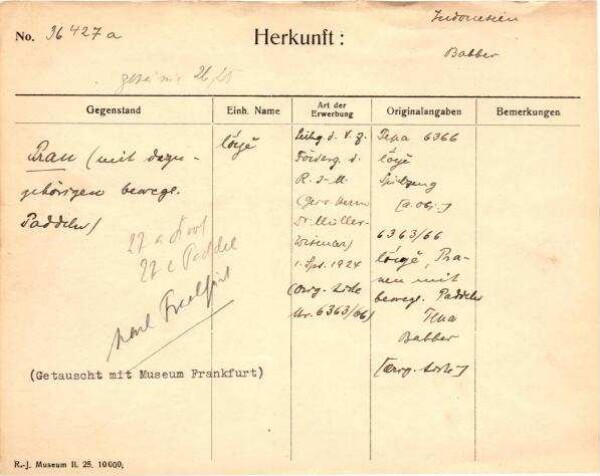 No. 36427a
Herkunft:
Indonesien
Babber
26,25
Gegenstand
Einh. Name
Art der Erwerbung
Originalangaben
Bemerkungen
Prau (mit dazu-
gehörigen bewegl.
Paddeln)
27 a Boot
27 c Paddel
nach Frankfurt
(Getauscht mit Museum Frankfurt)
lóyĕ
Slhg d. V. z.
Förderg. d.
R-J-M
Dr Müller-
Wismar)
1. Spt. 1924
(Orig. Liste
Nr. 6363/66)
Tepa 6366
lóyĕ
Spielzeug
[a. Obj.]
6363/66
lóyĕ, Prau-
en mit
bewegl. Paddeln
Tepa
Babber
[Orig. Liste]
R.-J. Museum II. 25. 10000.